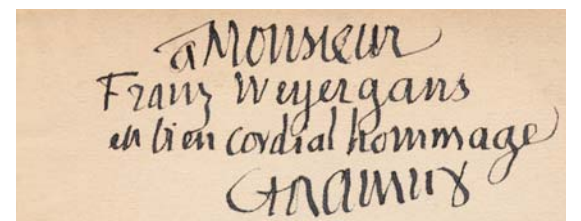 à Monsieur
Franz Weyergans
en bien cordial hommage
CF Ramuz